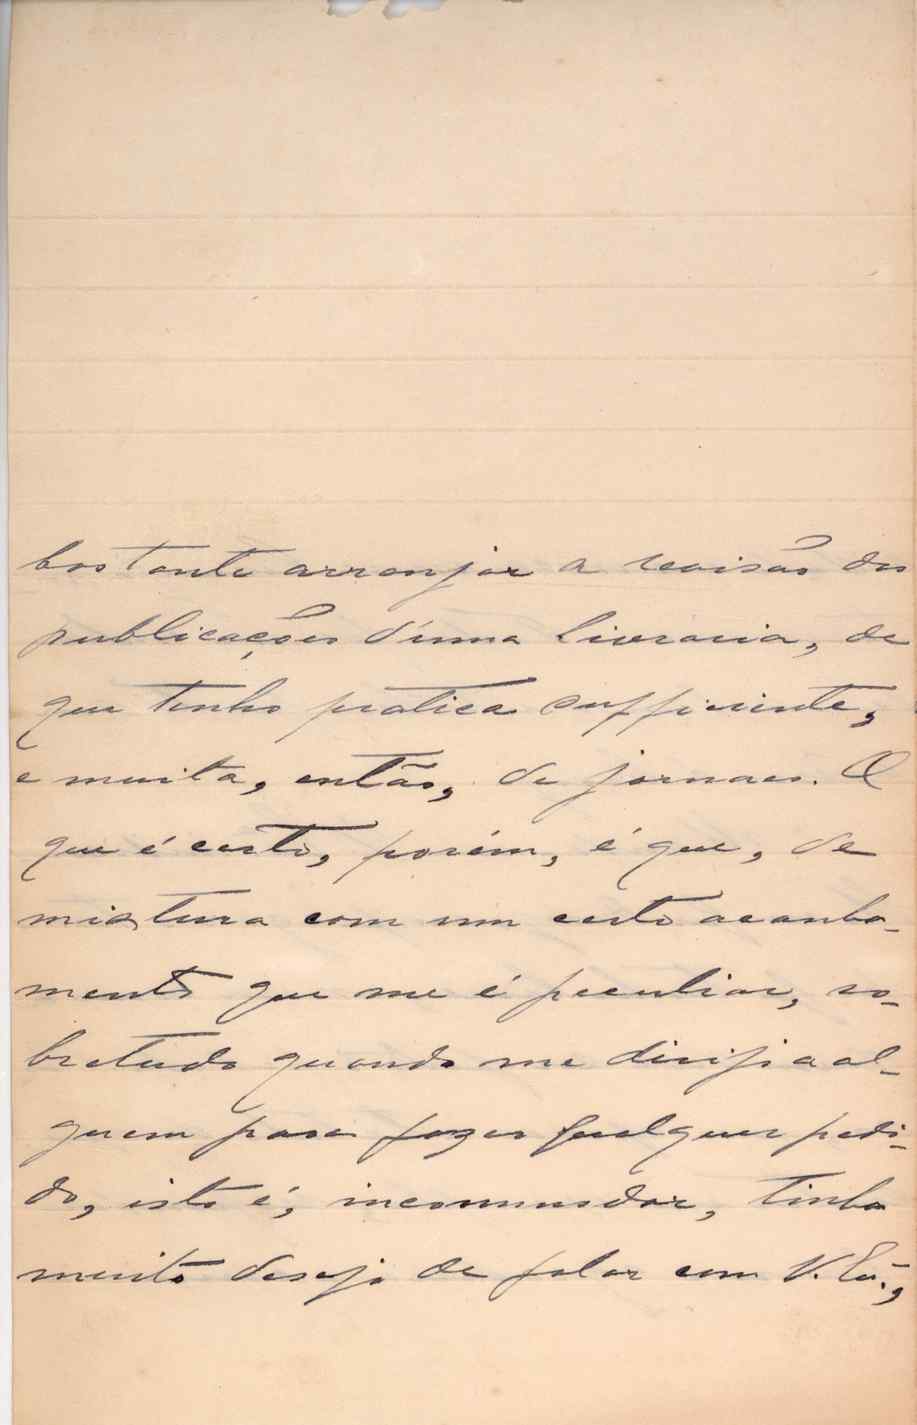 bastante arranjar a revisão das
publicações d'uma livraria, de
que tenho pratica sufficiente,
e muita, então, de jornaes. O
que é certo, porém, é que, de
mistura com um certo acanha-
mento que me é peculiar, so-
bretudo quando me dirijo a al-
guem para fazer qualquer pedi-
do, isto é, incommodar, tinha
muito desejo de falar com V. Ex.ª,